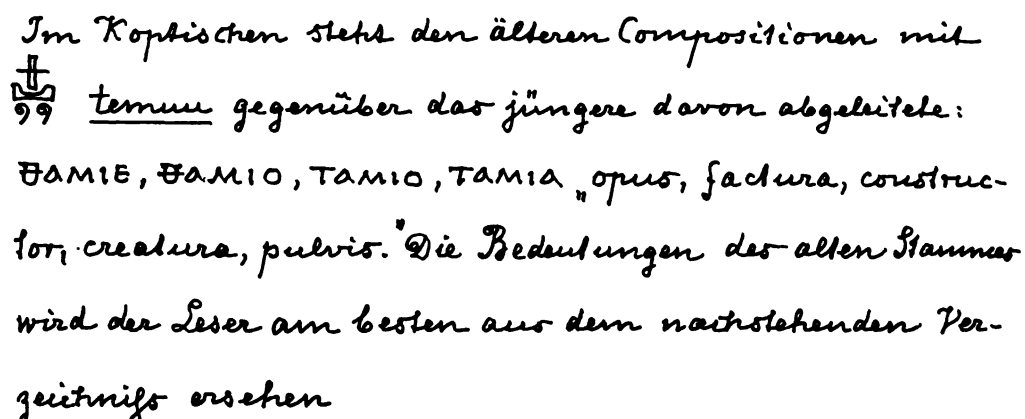 Im Koptischen steht den älteren Compositionen mit
temuu gegenüber das jüngere davon abgeleitete:
ⲐⲀⲘⲒⲈ, ⲐⲀⲘⲒⲞ, ⲦⲀⲘⲒⲞ, ⲦⲀⲘⲒⲀ „opus, factura, construc-
tor, creatura, pulvis." Die Bedeutungen des alten Stammes
wird der Leser am besten aus dem nachstehenden Ver-
zeichniſs ersehen